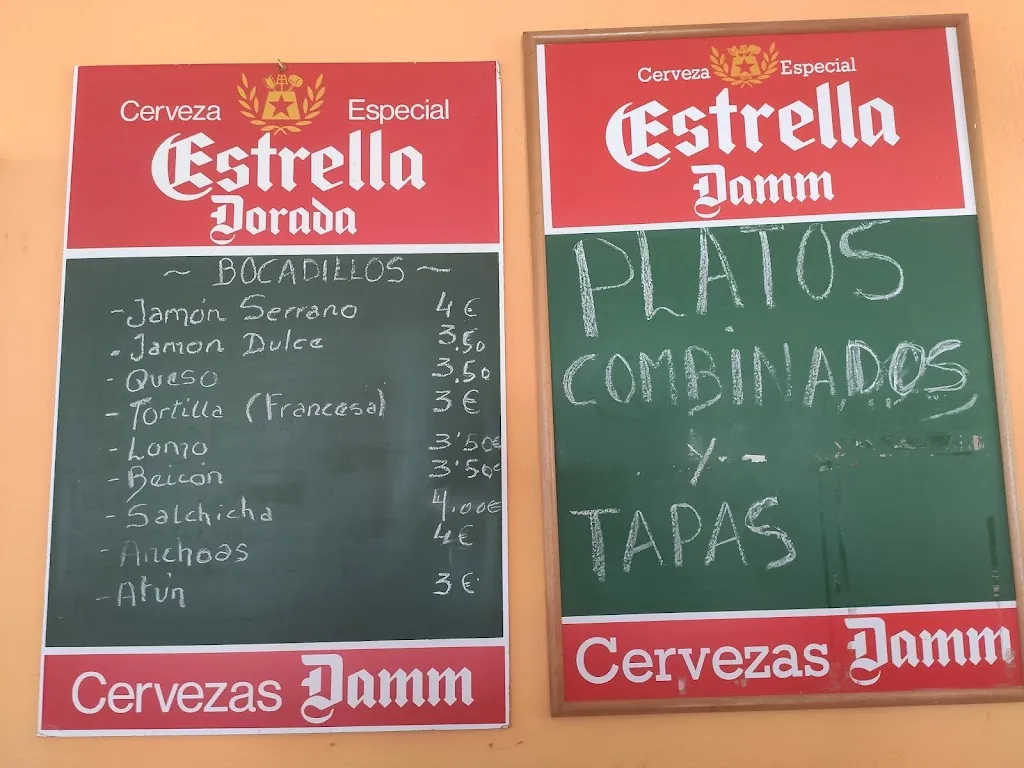 Cerveza Especial
Estrella
Dorada
~ BOCADILLOS ~
- Jamón Serrano 4 €
- Jamon Dulce 3.50
- Queso 3.50
- Tortilla (Francesa) 3 €
- Lomo 3'50€
- Beicón 3'50€
- Salchicha 4.00€
- Anchoas 4€
- Atún 3 €
Cervezas Damm
Cerveza Especial
Estrella
Damm
PLATOS
COMBINADOS
Y
TAPAS
Cervezas Damm